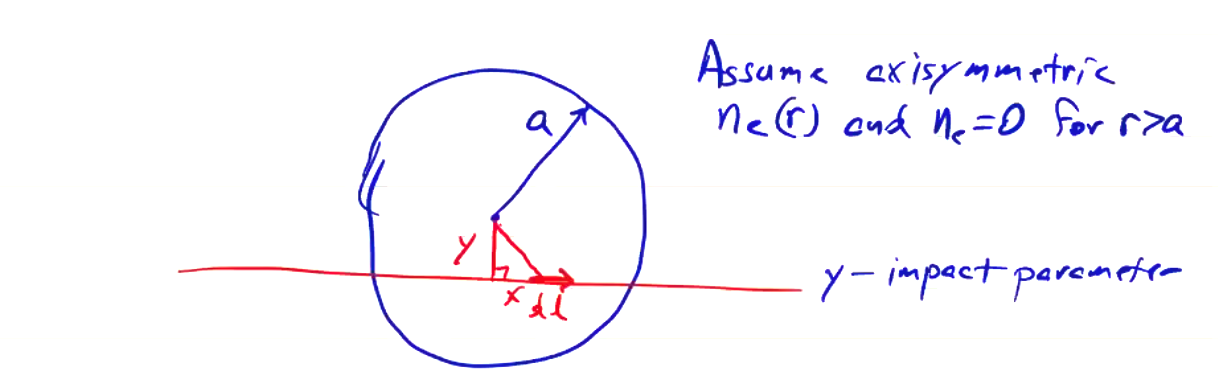 Assume axisymmetric
a
ne(r) and ne=0 for r>a
y
y - impact parameter
x
dl